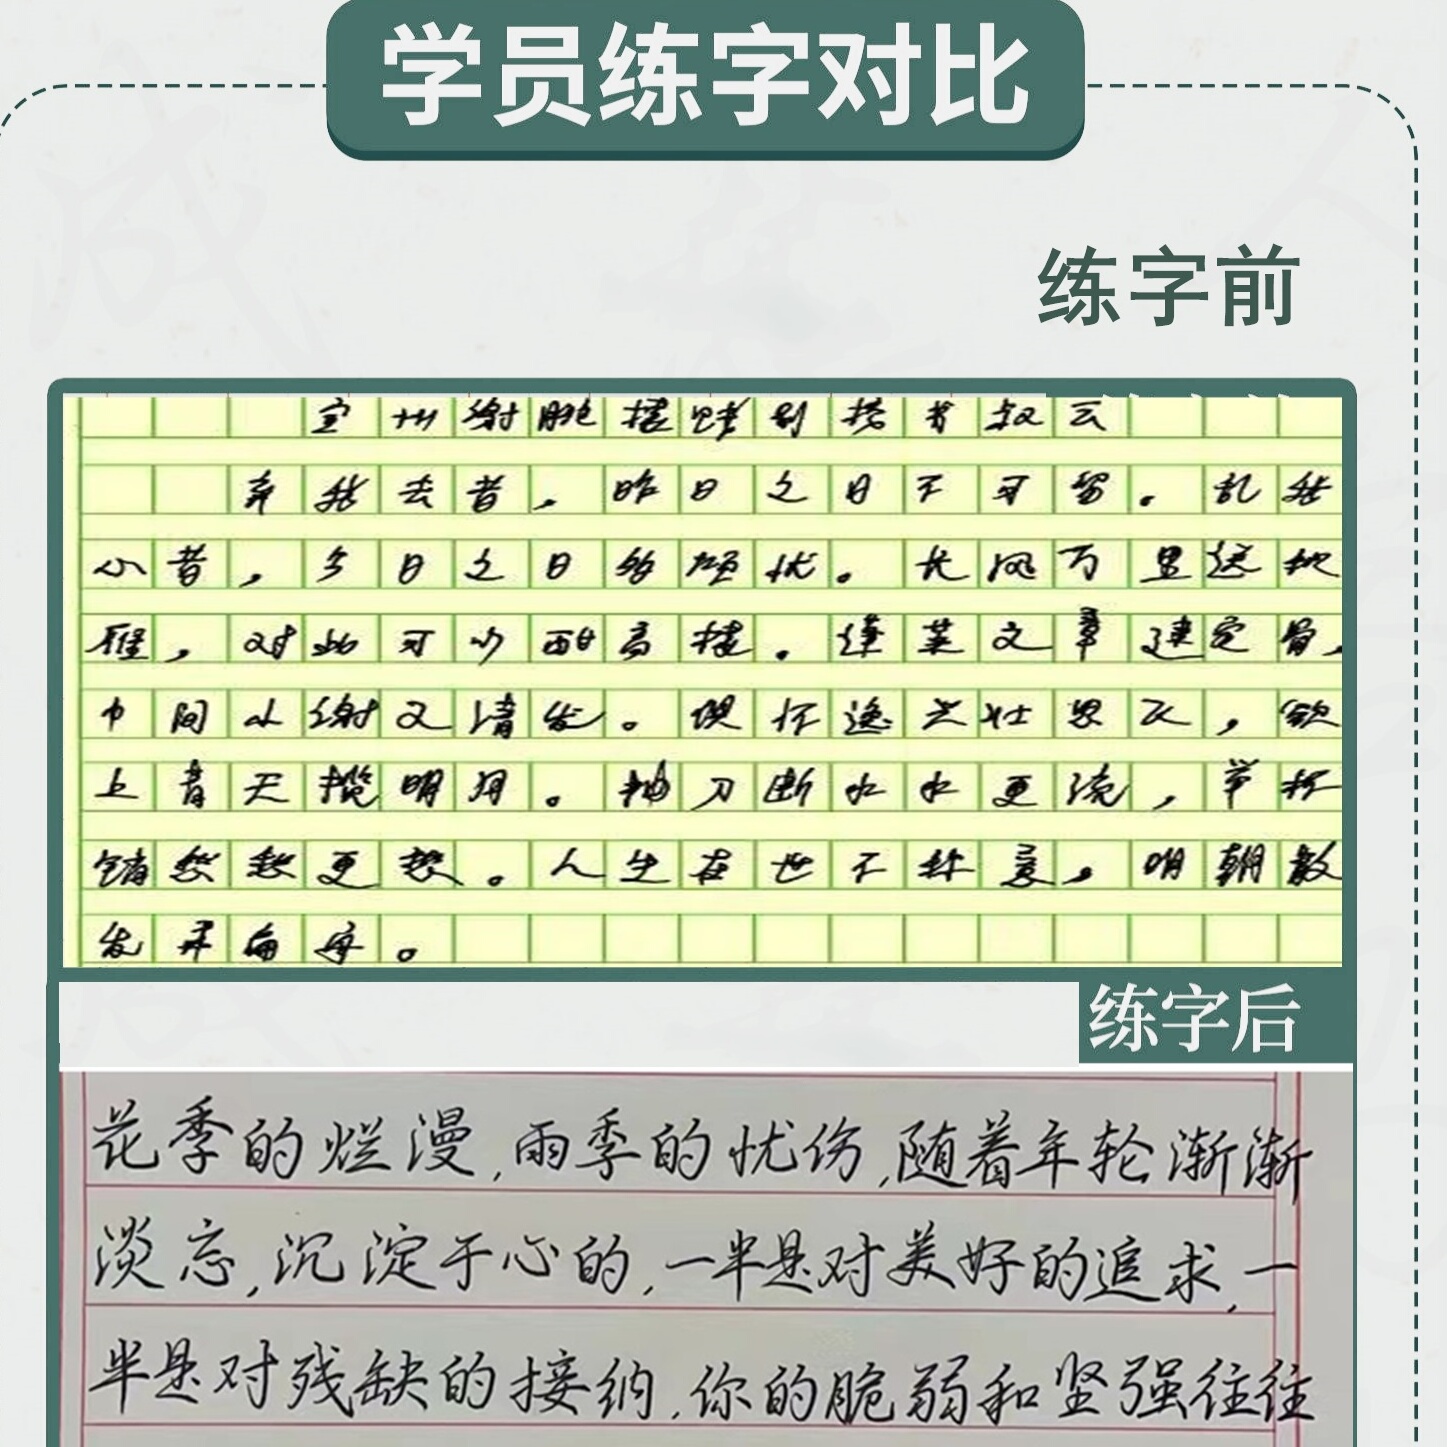 学员练字对比
练字前
宣州谢朓楼饯别校书叔云
弃我去者，昨日之日不可留。乱我
心者，今日之日多烦忧。长风万里送秋
雁，对此可以酣高楼。蓬莱文章建安骨，
中间小谢又清发。俱怀逸兴壮思飞，欲
上青天揽明月。抽刀断水水更流，举杯
销愁愁更愁。人生在世不称意，明朝散
发弄扁舟。
练字后
花季的烂漫,雨季的忧伤,随着年轮渐渐
淡忘,沉淀于心的,一半是对美好的追求,一
半是对残缺的接纳,你的脆弱和坚强往往